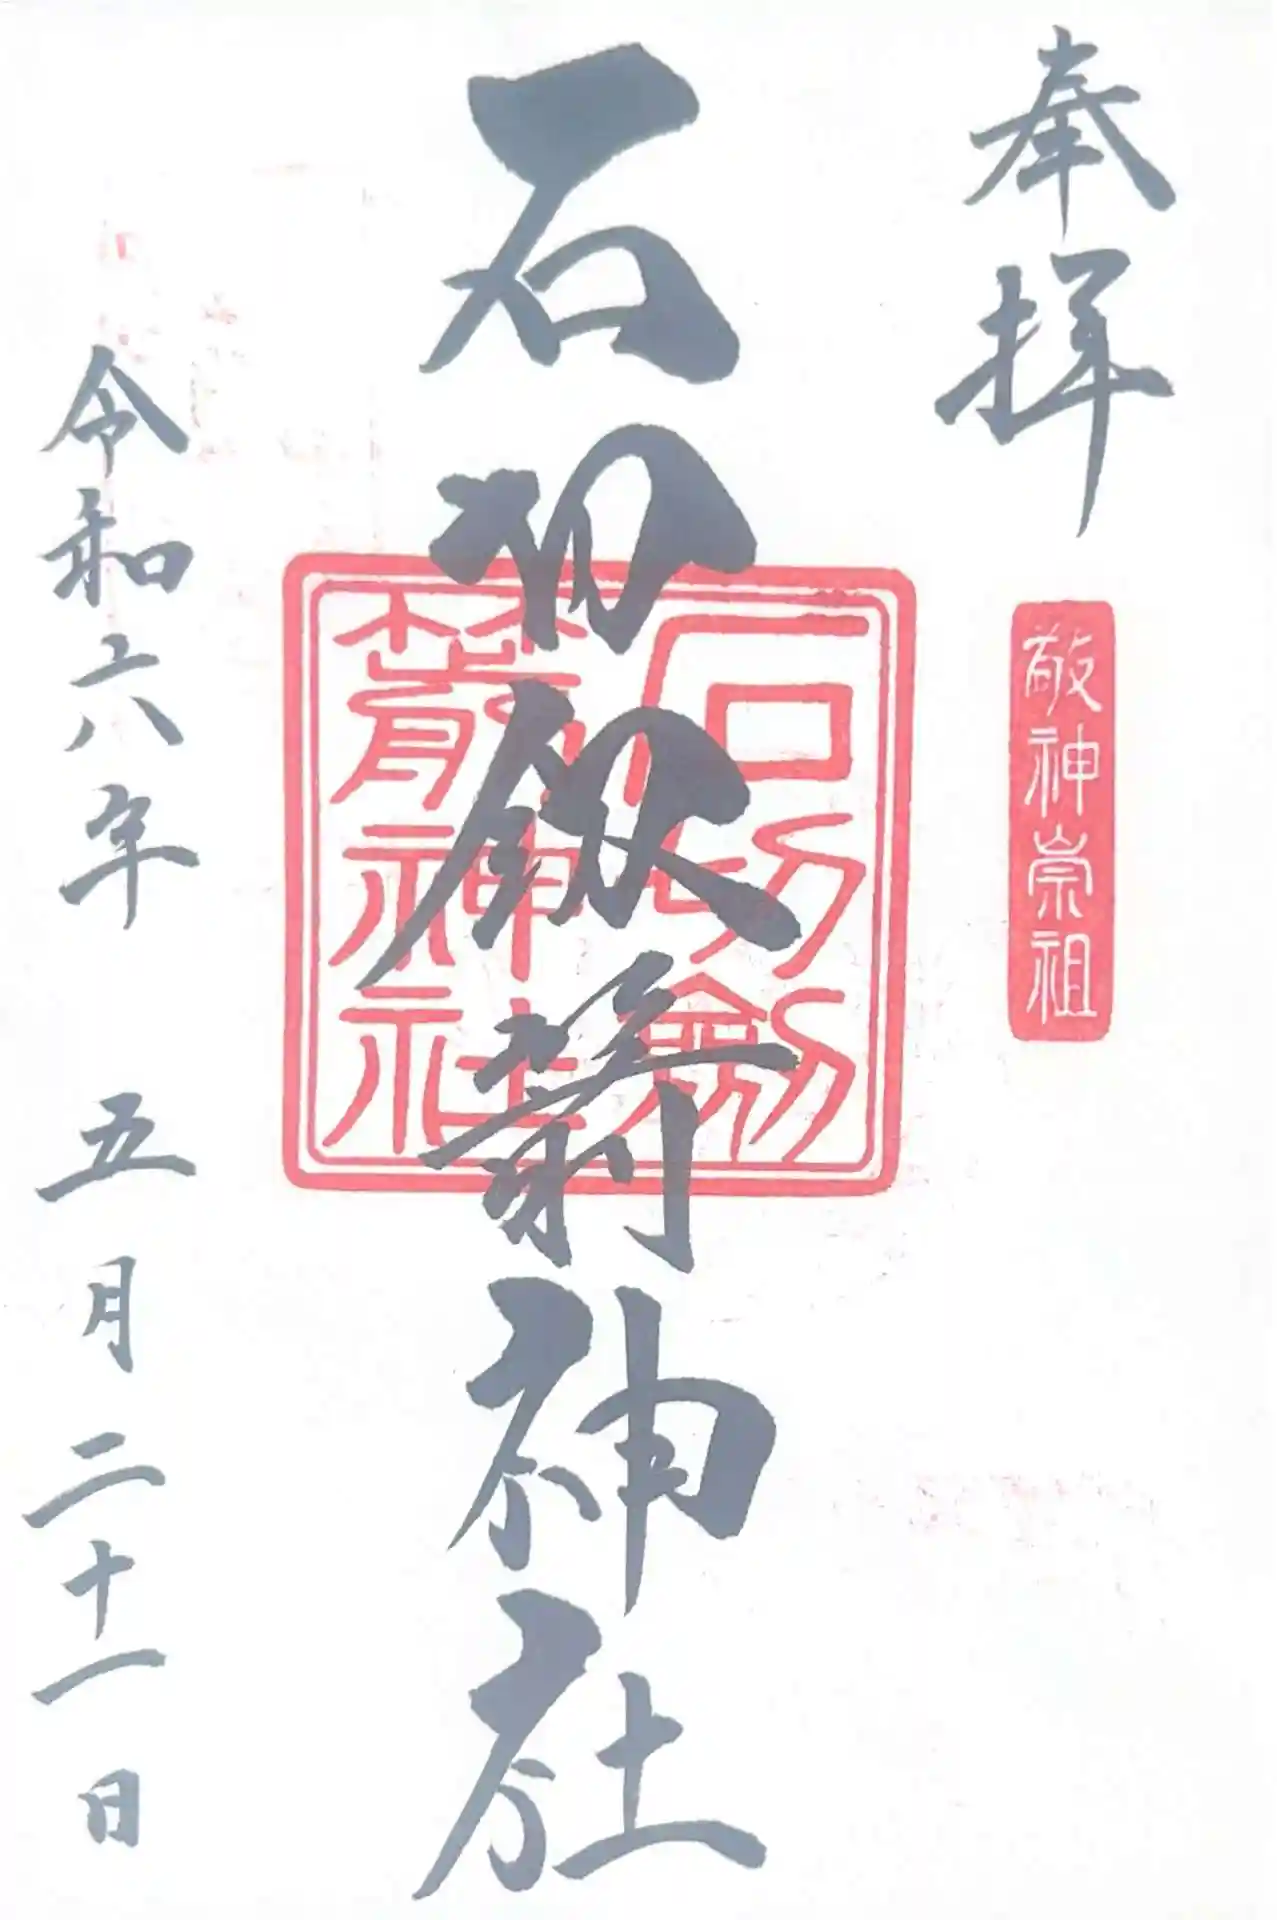 奉拝
敬神崇祖
石切釼箭神社
石切劔
箭神社
令和六年 五月二十一日